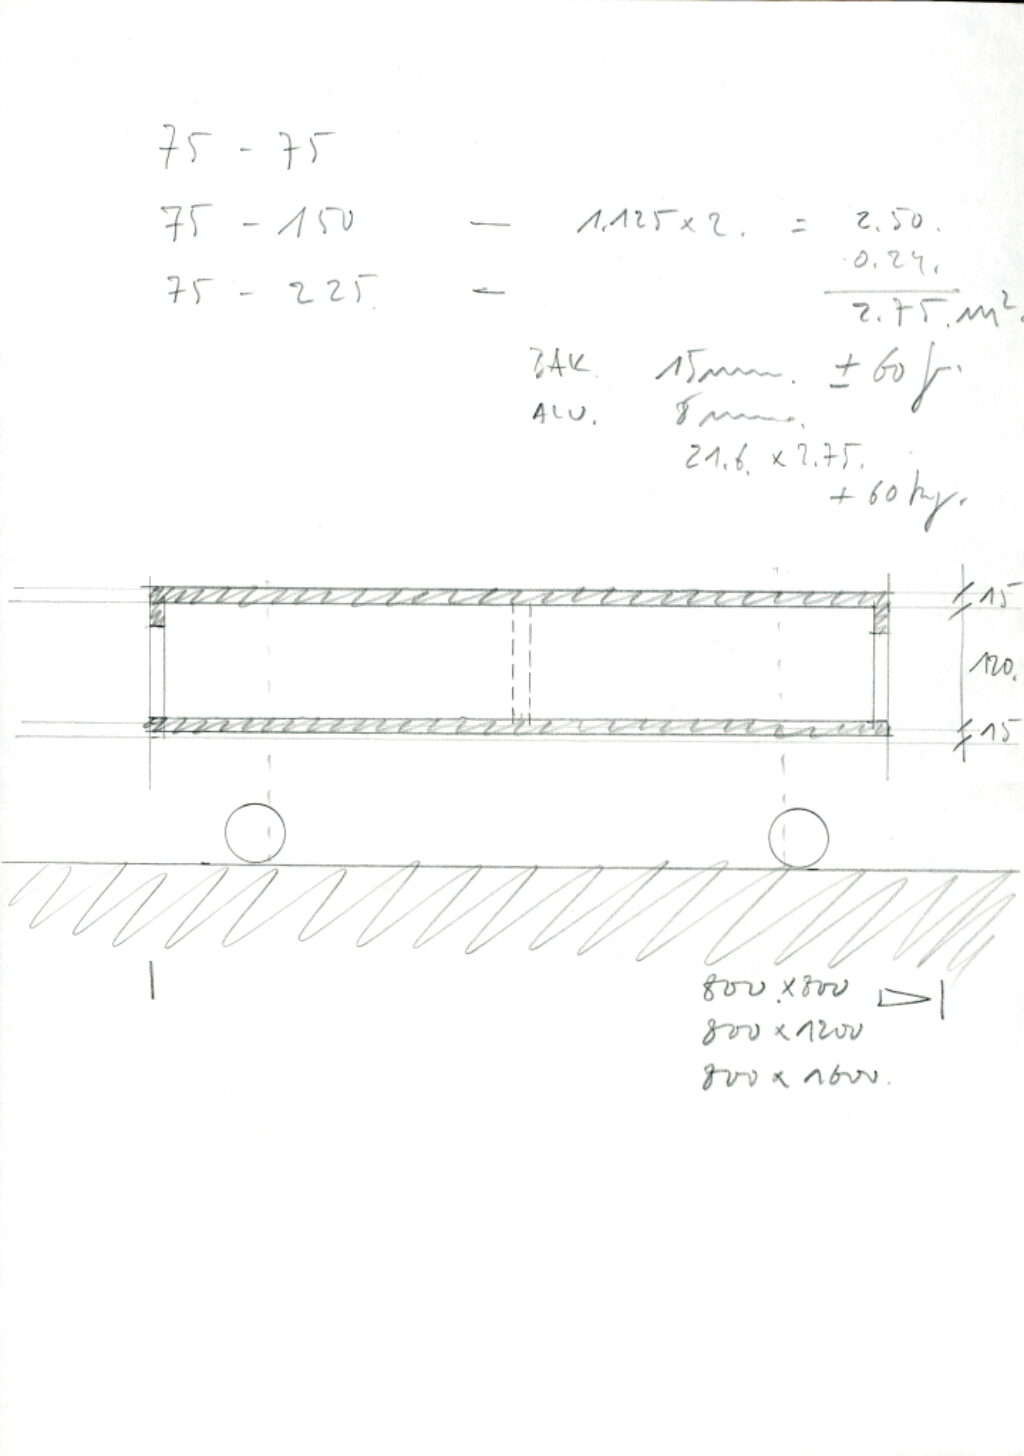 75 - 75
75 - 150 — 1.125 x 2. = 2.50.
0.24.
75 - 225. —
2.75. m².
BAK. 15mm. ± 60 kg.
ALU. 8 mm.
21.6. x 2.75.
± 60 kg.
15
120.
15
800 x 800
800 x 1200
800 x 1600.